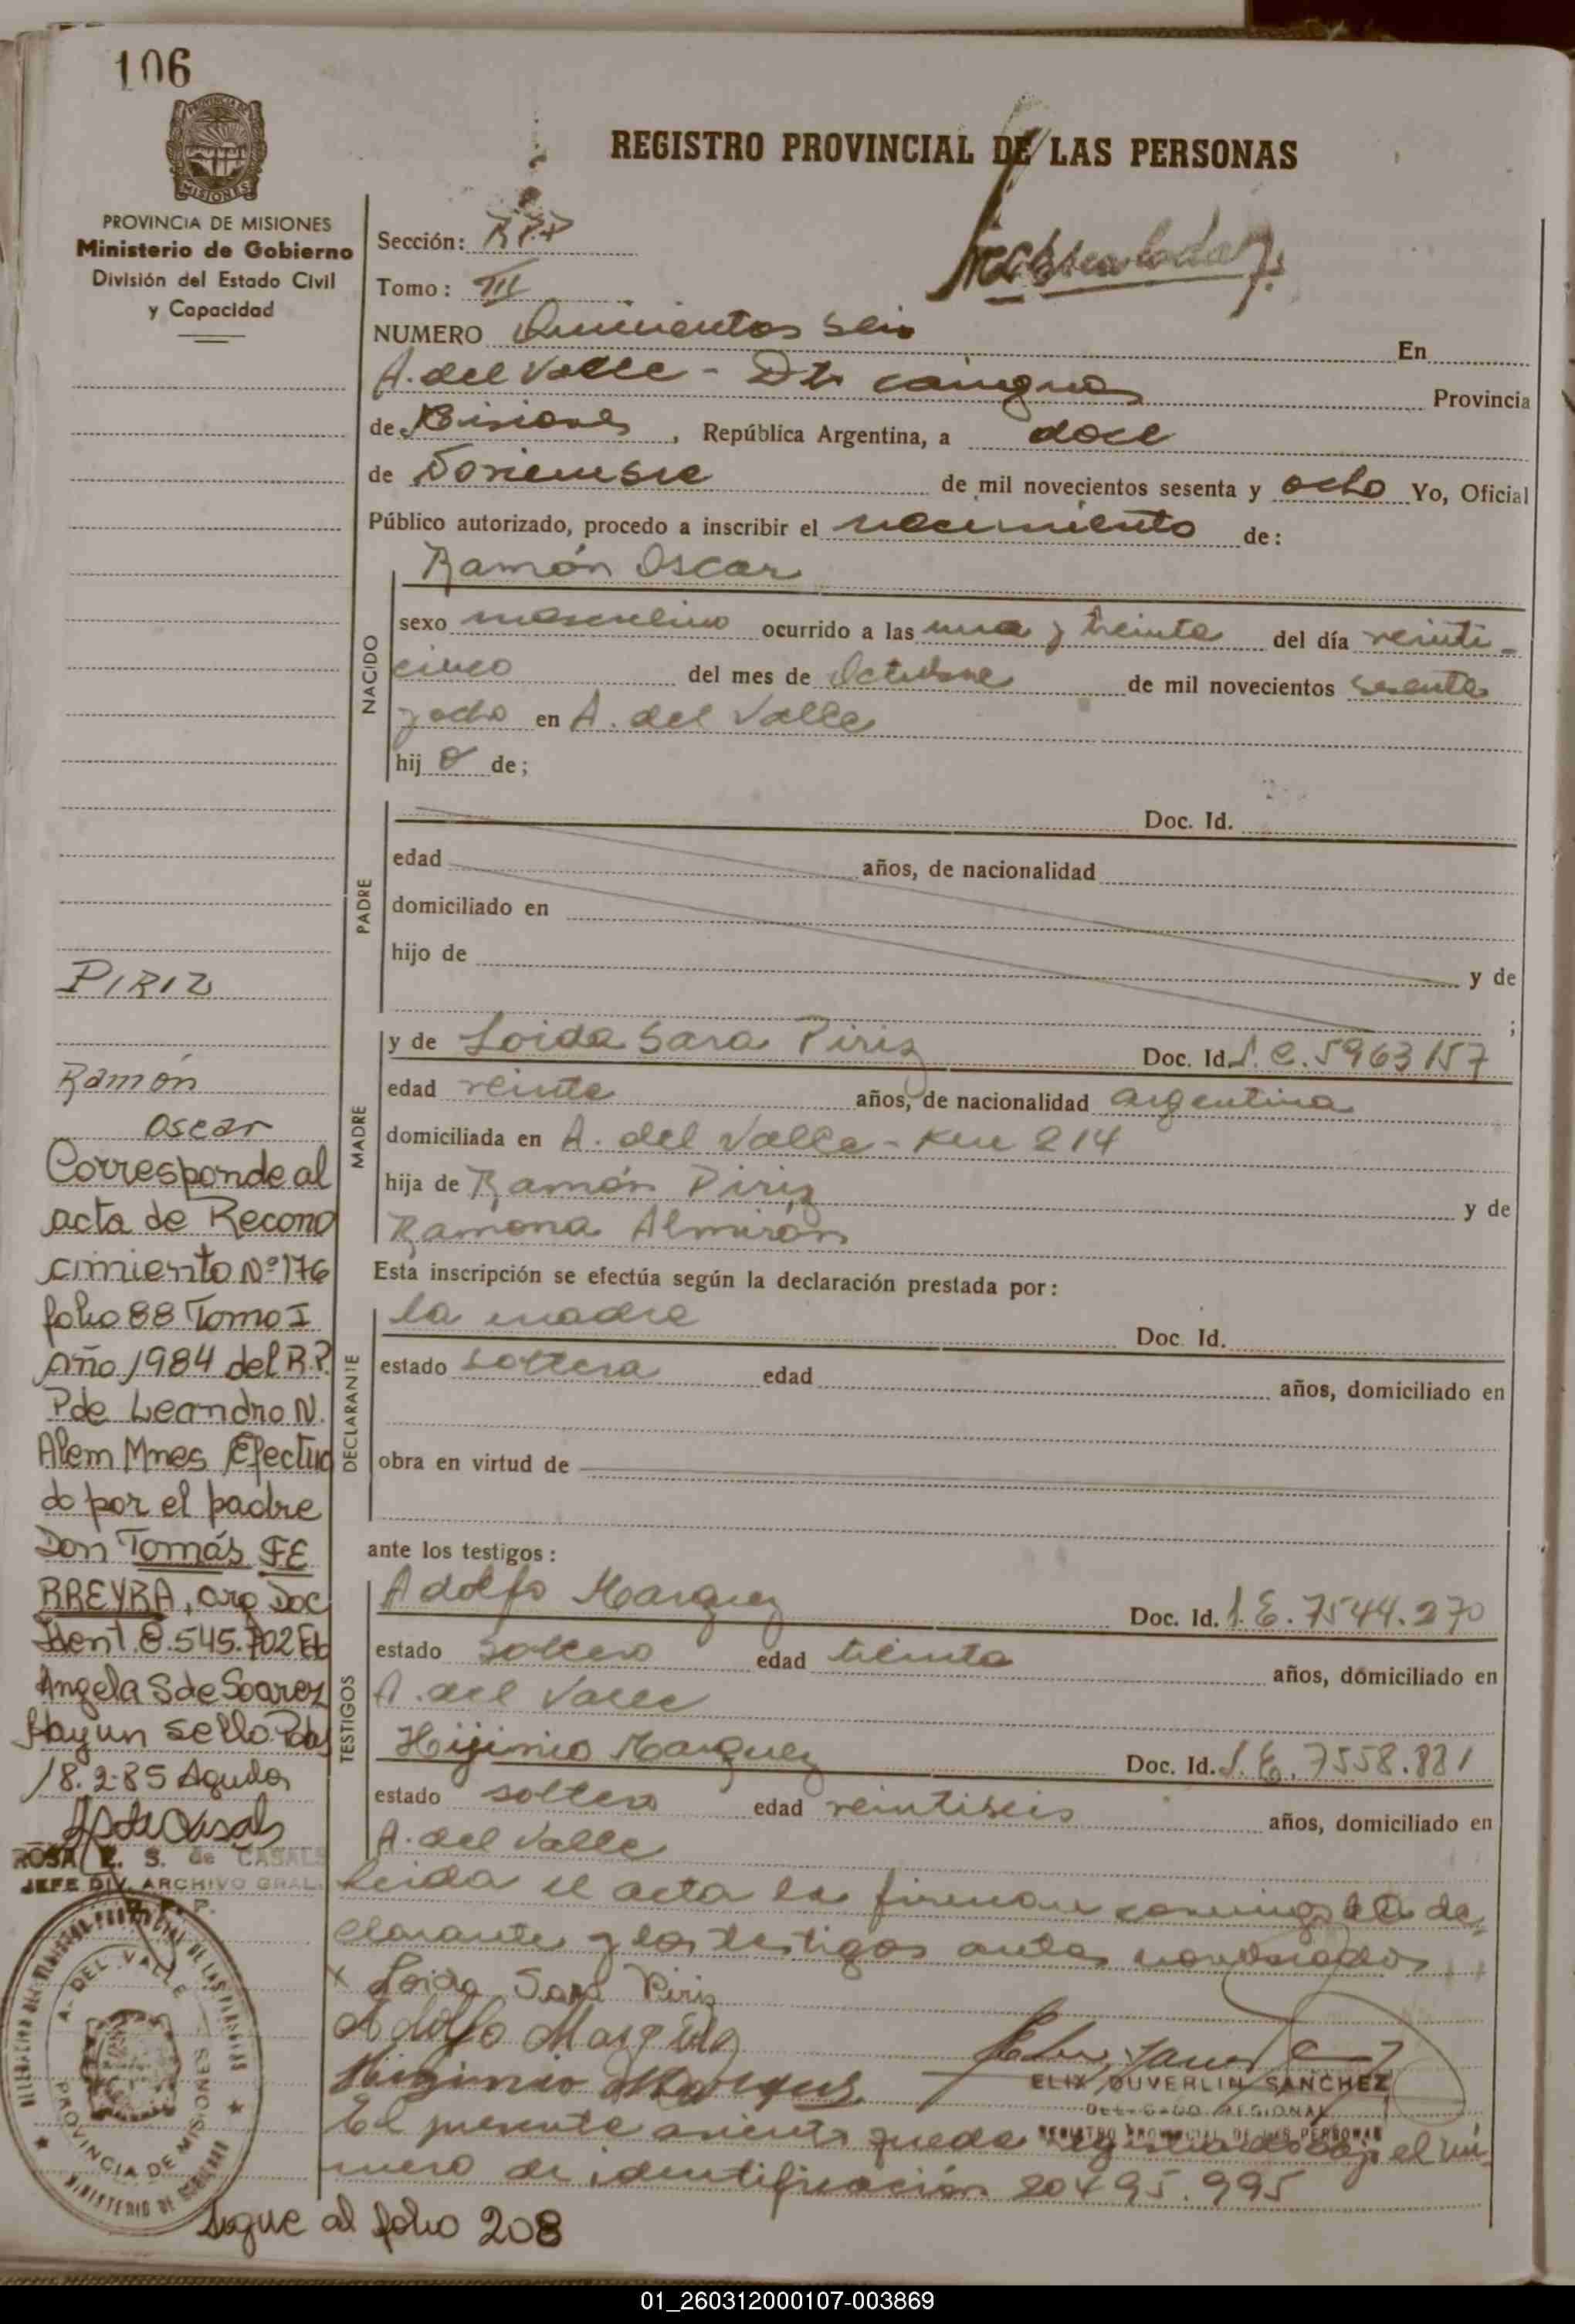 106
PROVINCIA DE MISIONES
Ministerio de Gobierno
División del Estado Civil
y Capacidad
REGISTRO PROVINCIAL DE LAS PERSONAS
Sección: R.P.P
Tomo: III
NUMERO Quinientos seis En
A. del Valle - Dto cainguas Provincia
de Misiones, República Argentina, a doce
de Noviembre de mil novecientos sesenta y ocho Yo, Oficial
Público autorizado, procedo a inscribir el nacimiento de:
Ramón Oscar
NACIDO
sexo masculino ocurrido a las una y treinta del día veinti-
cinco del mes de Octubre de mil novecientos sesenta
y ocho en A. del Valle
hij o de;
PADRE
Doc. Id.
edad años, de nacionalidad
domiciliado en
hijo de y de
;
MADRE
y de Loida Sara Piriz Doc. Id. L.C. 5963157
edad veinte años, de nacionalidad argentina
domiciliada en A. del Valle - Km 214
hija de Ramón Piriz y de
Ramona Almirón
Esta inscripción se efectúa según la declaración prestada por:
DECLARANTE
la madre Doc. Id.
estado soltera edad años, domiciliado en
obra en virtud de
ante los testigos:
TESTIGOS
Adolfo Marquez Doc. Id. L.E. 7544.270
estado soltero edad treinta años, domiciliado en
A. del Valle
Hijinio Marquez Doc. Id. L.E. 7558.881
estado soltero edad veintiseis años, domiciliado en
A. del Valle
Leida el acta la firman conmigo la de
clarante y los testigos antes nombrados
x Loida Sara Piriz
Adolfo Marquez
Higinio Marquez
ELIX DUVERLIN SANCHEZ
DELEGADO REGIONAL
REGISTRO PROVINCIAL DE LAS PERSONAS
El presente asiento queda registrado bajo el nú-
mero de identificación 20495.995
PIRIZ
Ramón
Oscar
Corresponde al
acta de Recono
cimiento Nº 176
folio 88 Tomo I
año 1984 del R.P.
P de Leandro N.
Alem Mnes Efectua
do por el padre
Don Tomás FE
RREYRA, arg Doc
Ident. 8.545.702 Fdo
Angela S de Soarez
Hay un sello Pdas
18.2.85 Agudo
ROSA E. S. de CASALS
JEFE DIV. ARCHIVO GRAL.
R. P. P.
A. DEL VALLE
PROVINCIA DE MISIONES
MINISTERIO DE GOBIERNO
Sigue al folio 208
01_260312000107-003869